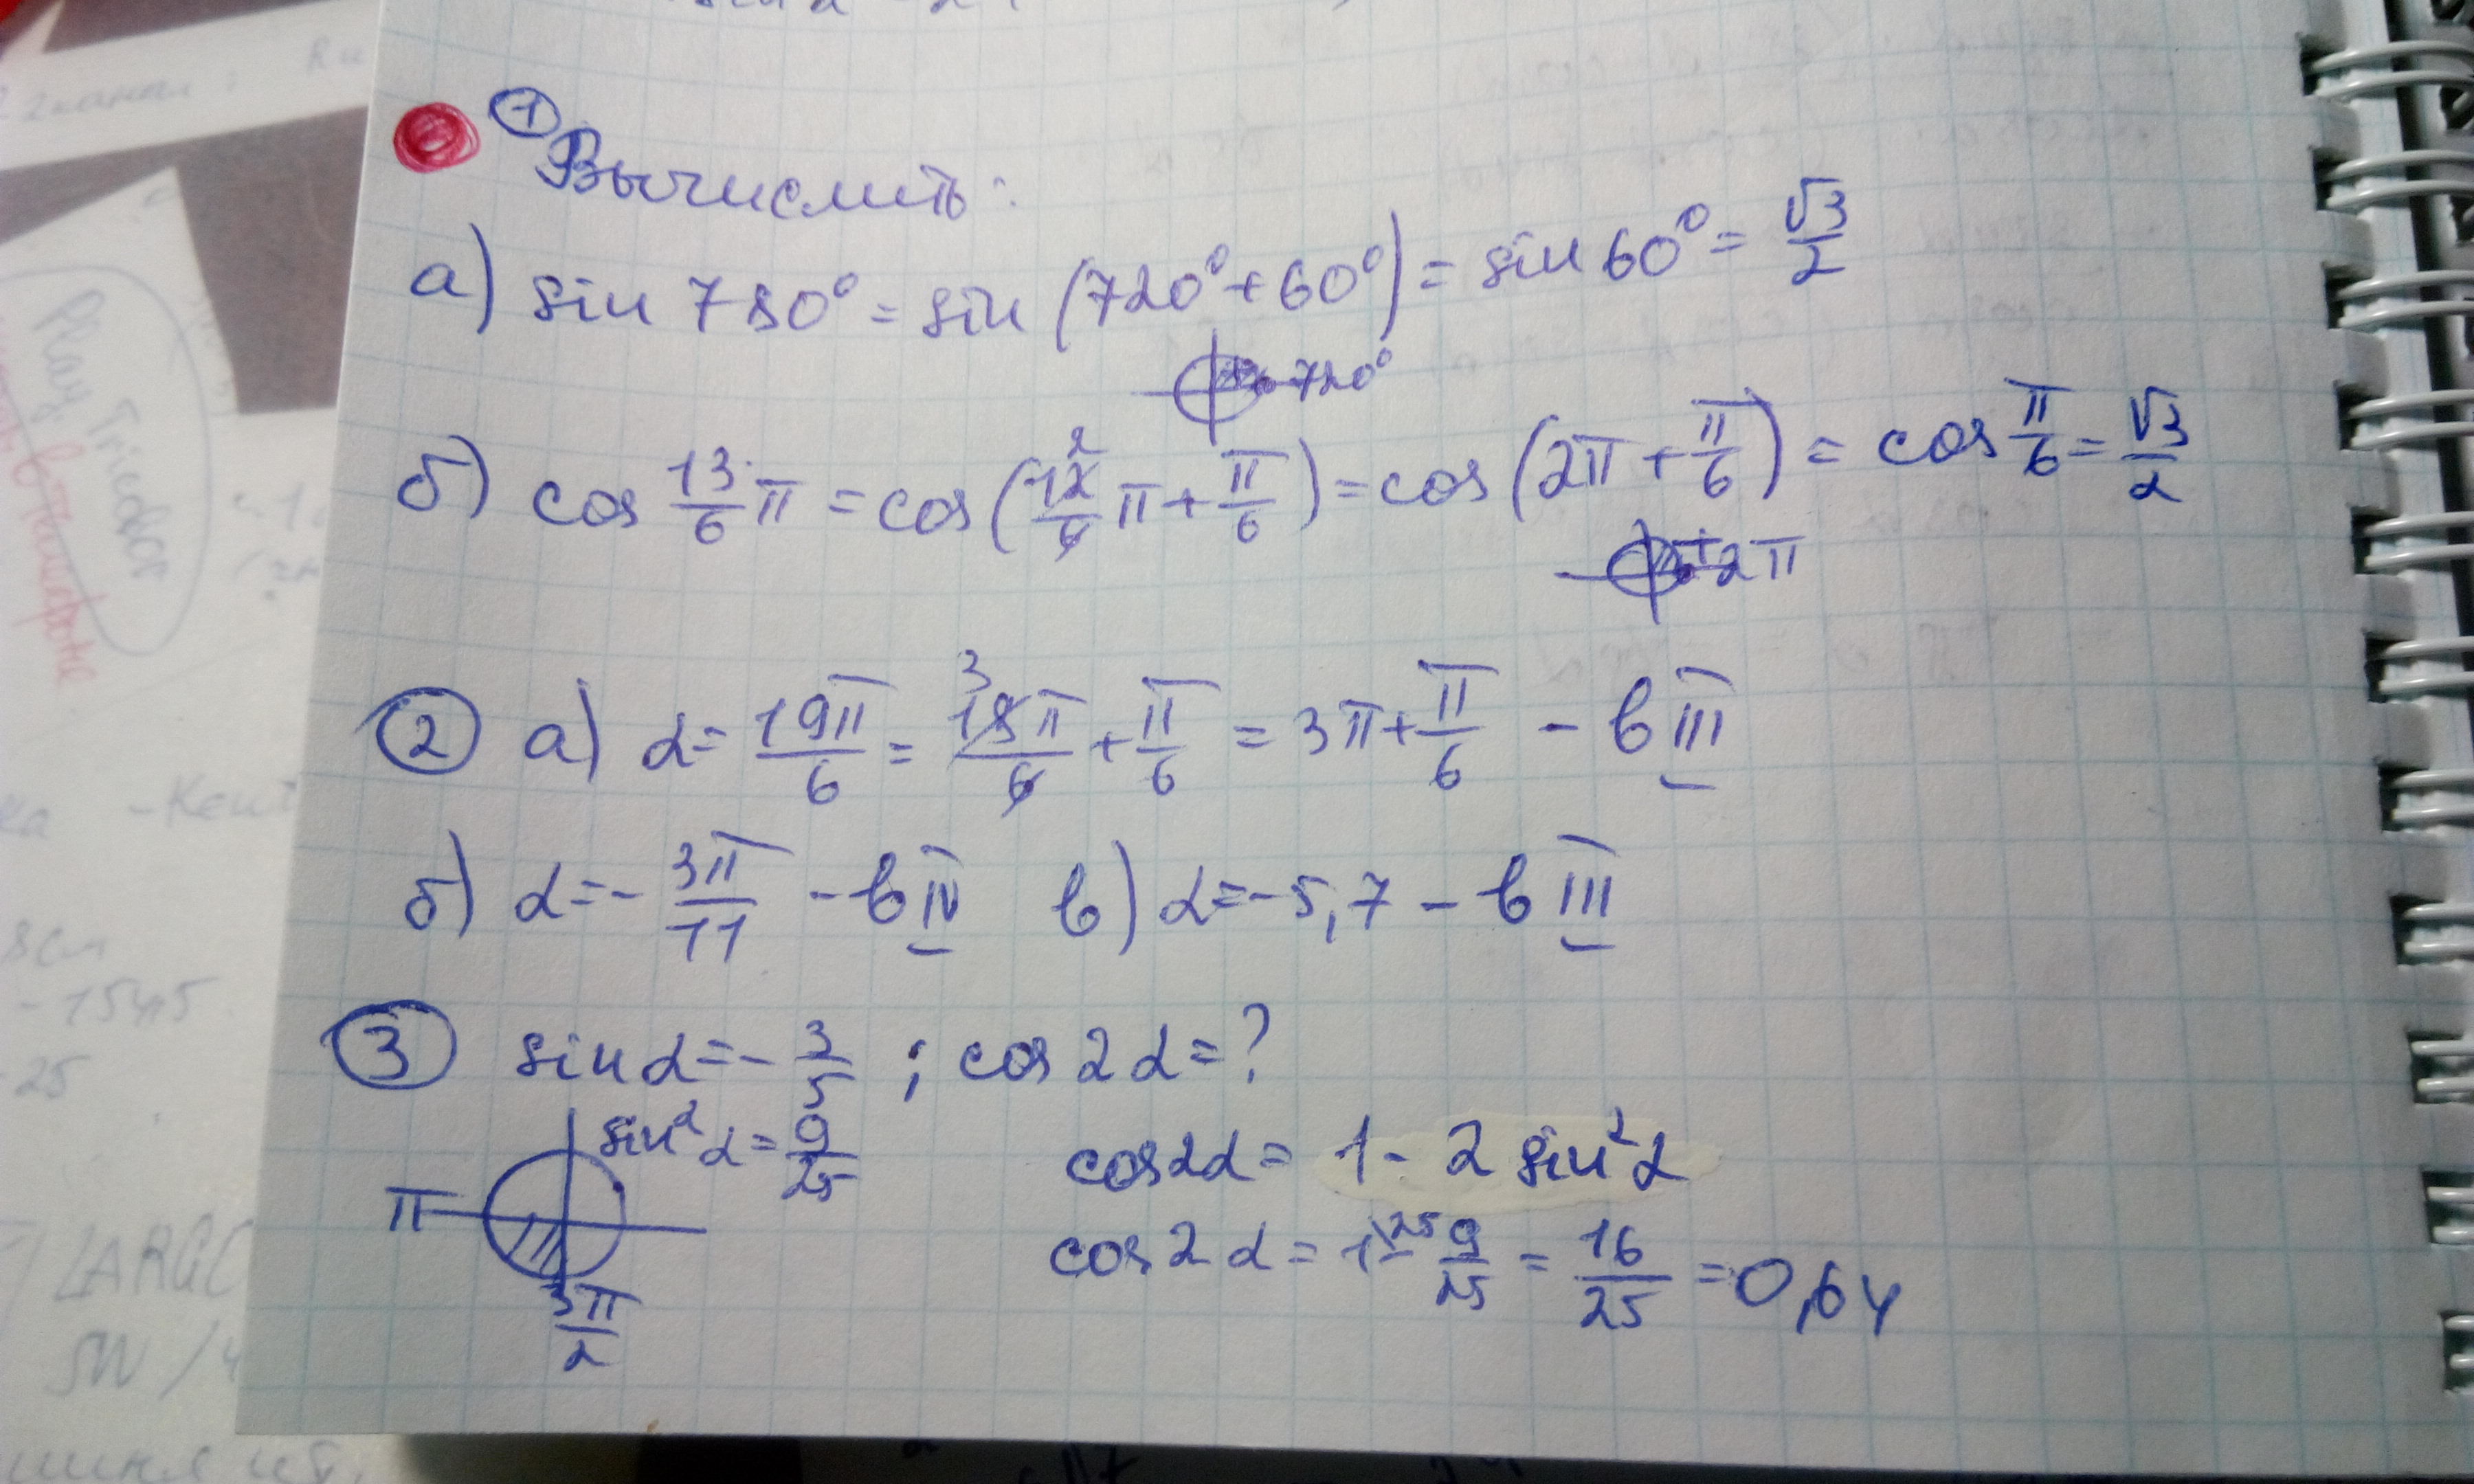 ① Вычислить:
а) sin 780° = sin (720° + 60°) = sin 60° = √3/2
720°
б) cos 13/6 π = cos (12/6 π + π/6) = cos (2π + π/6) = cos π/6 = √3/2
2
2π
② а) α = 19π/6 = 18π/6 + π/6 = 3π + π/6 – в III
3
б) α = - 3π/11 – в IV в) α = -5,7 – в III
③ sin α = - 3/5 ; cos 2α = ?
sin²α = 9/25 cos2α = 1 - 2 sin²α
π cos 2α = 1\25 - 9/25 = 16/25 = 0,64
3π/2
Play Tricolor
в телефоне
2 канал:
- Кешт
- 1545
25
LARGO
5W /4